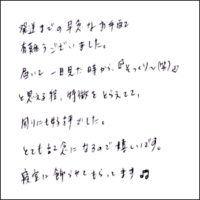 発送までの早急なお手配
有難うございました。
届いて一目見た時から、『そっくり〜(笑)』
と思える程、特徴をとらえてて、
周りにも好評でした。
とても記念になるので嬉しいです。
寝室に飾らせてもらってます♫